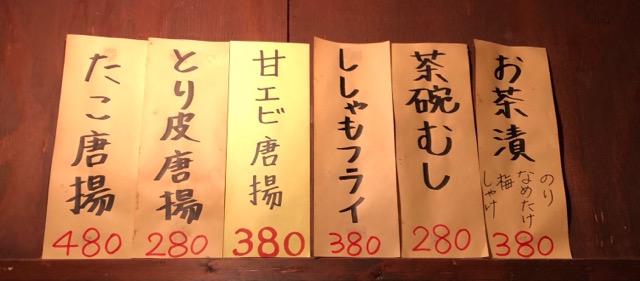 お茶漬
のり
なめたけ
梅
しゃけ
380
茶碗むし
280
ししゃもフライ
380
甘エビ唐揚
380
とり皮唐揚
280
たこ唐揚
480